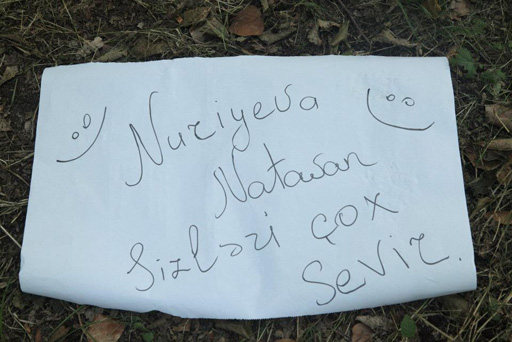 Nuriyeva
Natavan
Sizləri çox
sevir.